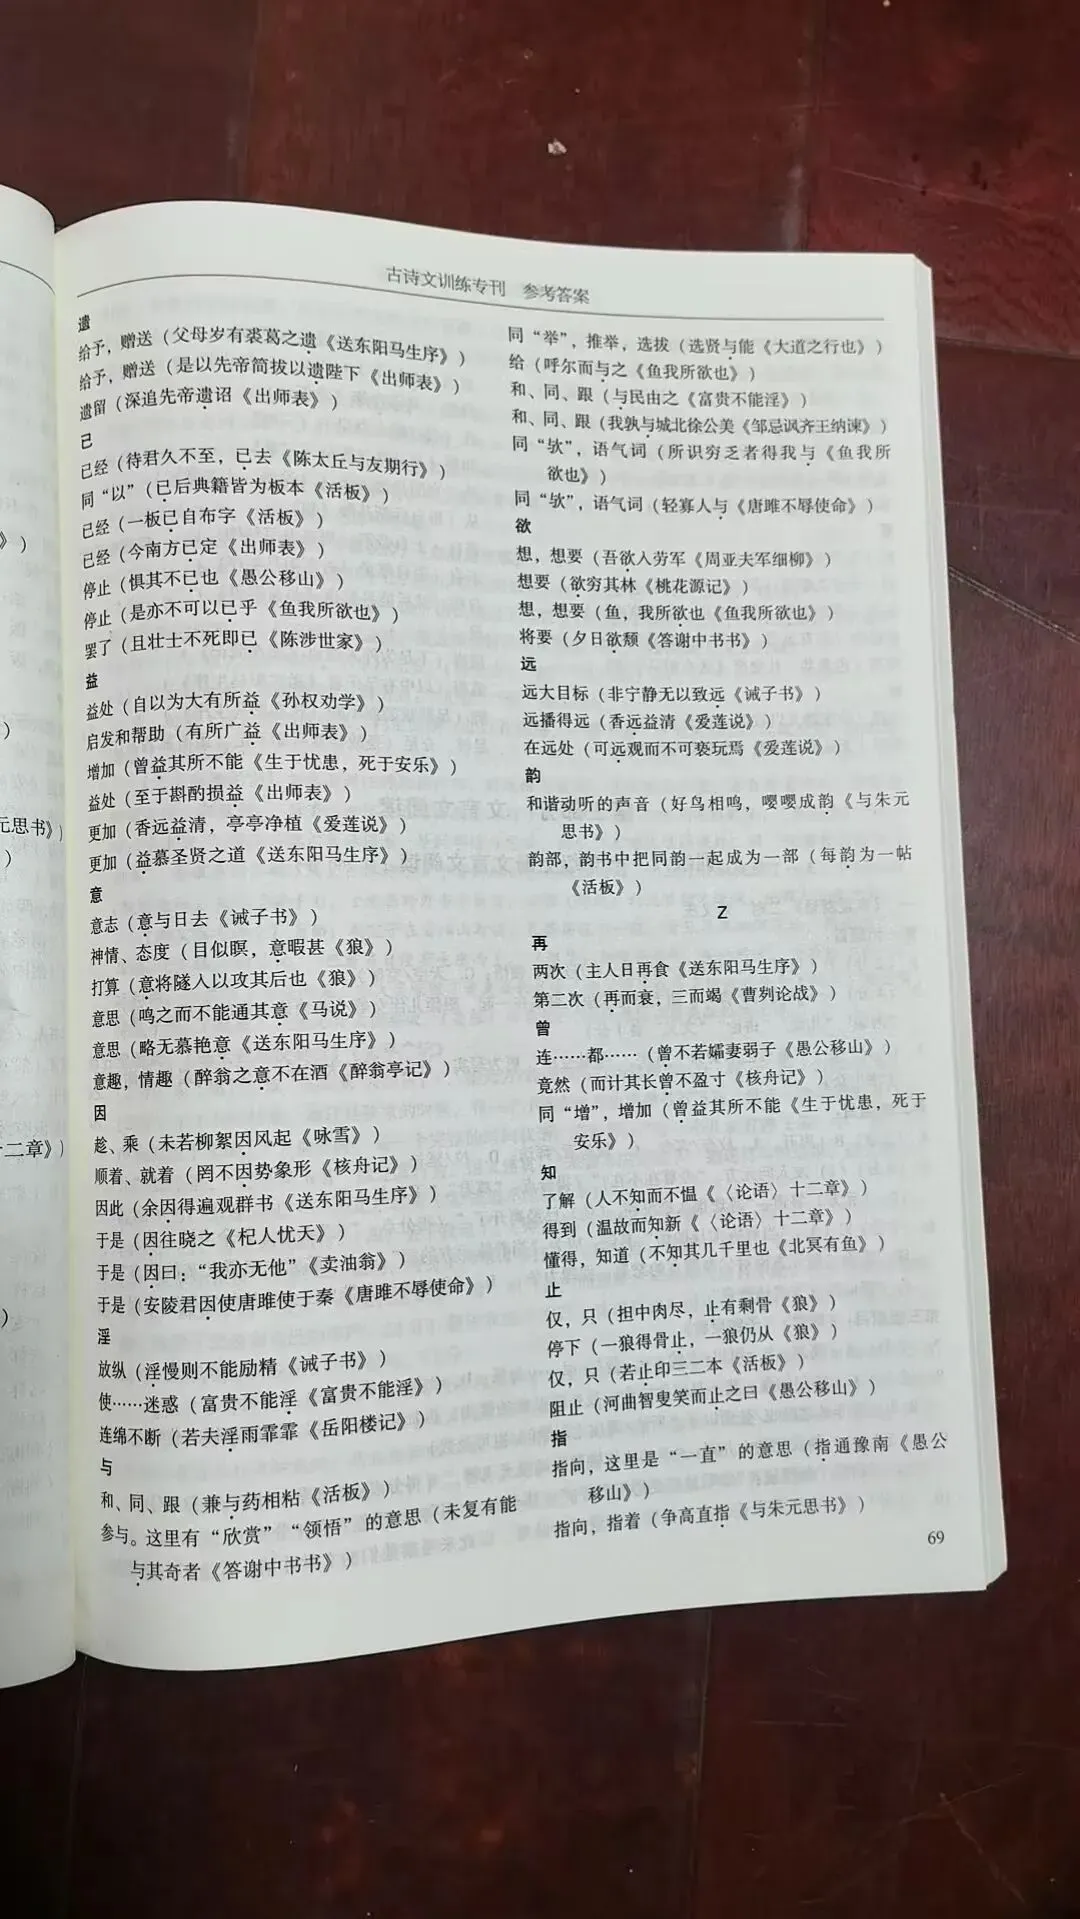 古诗文训练专刊 参考答案
遗
给予，赠送（父母岁有裘葛之遗《送东阳马生序》）
给予，赠送（是以先帝简拔以遗陛下《出师表》）
遗留（深追先帝遗诏《出师表》）
已
已经（待君久不至，已去《陈太丘与友期行》）
同“以”（已后典籍皆为板本《活板》）
已经（一板已自布字《活板》）
已经（今南方已定《出师表》）
停止（惧其不已也《愚公移山》）
停止（是亦不可以已乎《鱼我所欲也》）
罢了（且壮士不死即已《陈涉世家》）
益
益处（自以为大有所益《孙权劝学》）
启发和帮助（有所广益《出师表》）
增加（曾益其所不能《生于忧患，死于安乐》）
益处（至于斟酌损益《出师表》）
更加（香远益清，亭亭净植《爱莲说》）
更加（益慕圣贤之道《送东阳马生序》）
意
意志（意与日去《诫子书》）
神情、态度（目似瞑，意暇甚《狼》）
打算（意将隧入以攻其后也《狼》）
意思（鸣之而不能通其意《马说》）
意思（略无慕艳意《送东阳马生序》）
意趣，情趣（醉翁之意不在酒《醉翁亭记》）
因
趁、乘（未若柳絮因风起《咏雪》）
顺着、就着（罔不因势象形《核舟记》）
因此（余因得遍观群书《送东阳马生序》）
于是（因往晓之《杞人忧天》）
于是（因曰：“我亦无他”《卖油翁》）
于是（安陵君因使唐雎使于秦《唐雎不辱使命》）
淫
放纵（淫慢则不能励精《诫子书》）
使……迷惑（富贵不能淫《富贵不能淫》）
连绵不断（若夫淫雨霏霏《岳阳楼记》）
与
和、同、跟（兼与药相粘《活板》）
参与。这里有“欣赏”“领悟”的意思（未复有能
与其奇者《答谢中书书》）
同“举”，推举，选拔（选贤与能《大道之行也》）
给（呼尔而与之《鱼我所欲也》）
和、同、跟（与民由之《富贵不能淫》）
和、同、跟（我孰与城北徐公美《邹忌讽齐王纳谏》）
同“欤”，语气词（所识穷乏者得我与《鱼我所
欲也》）
同“欤”，语气词（轻寡人与《唐雎不辱使命》）
欲
想，想要（吾欲入劳军《周亚夫军细柳》）
想要（欲穷其林《桃花源记》）
想，想要（鱼，我所欲也《鱼我所欲也》）
将要（夕日欲颓《答谢中书书》）
远
远大目标（非宁静无以致远《诫子书》）
远播得远（香远益清《爱莲说》）
在远处（可远观而不可亵玩焉《爱莲说》）
韵
和谐动听的声音（好鸟相鸣，嘤嘤成韵《与朱元
思书》）
韵部，韵书中把同韵一起成为一部（每韵为一帖
《活板》）
Z
再
两次（主人日再食《送东阳马生序》）
第二次（再而衰，三而竭《曹刿论战》）
曾
连……都……（曾不若孀妻弱子《愚公移山》）
竟然（而计其长曾不盈寸《核舟记》）
同“增”，增加（曾益其所不能《生于忧患，死于
安乐》）
知
了解（人不知而不愠《〈论语〉十二章》）
得到（温故而知新《〈论语〉十二章》）
懂得，知道（不知其几千里也《北冥有鱼》）
止
仅，只（担中肉尽，止有剩骨《狼》）
停下（一狼得骨止，一狼仍从《狼》）
仅，只（若止印三二本《活板》）
阻止（河曲智叟笑而止之曰《愚公移山》）
指
指向，这里是“一直”的意思（指通豫南《愚公
移山》）
指向，指着（争高直指《与朱元思书》）
69
元思书》）
十二章》）